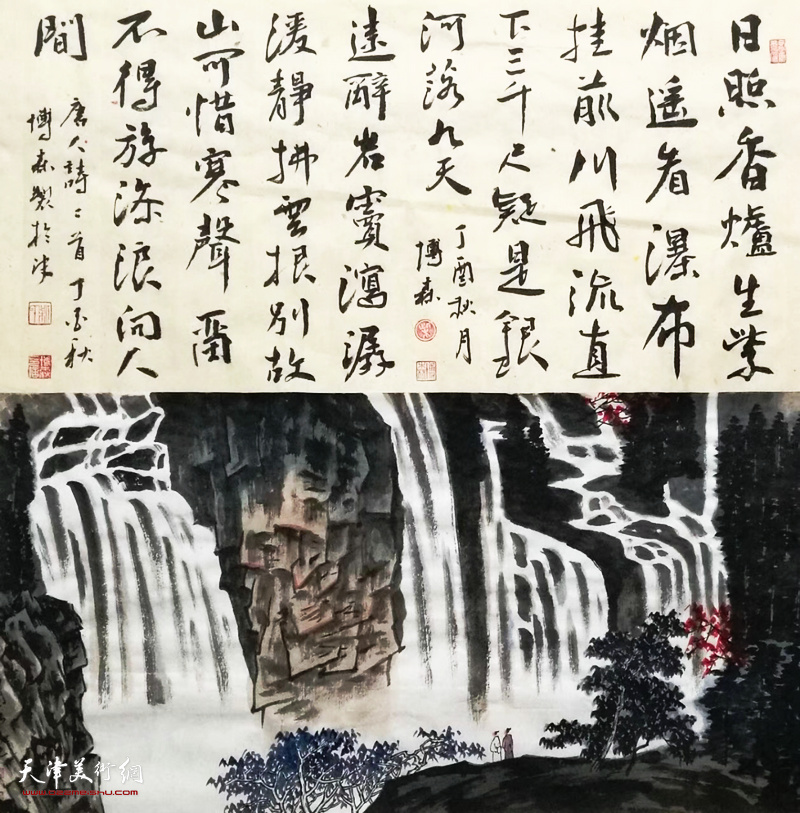 日照香爐生紫
烟遥看瀑布
挂前川飛流直
下三千尺疑是銀
河落九天
丁酉秋月
博森
遠辭岩竇瀉潺
湲靜拂雲根別故
山可惜寒聲留
不得旋添浪向人
間
唐人詩二首丁酉秋
博森製於津
天津美術網